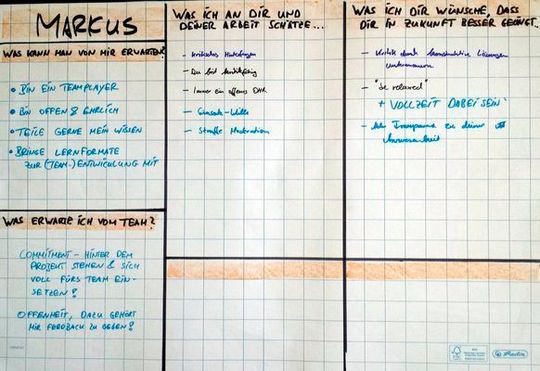 MARKUS
WAS KANN MAN VON MIR ERWARTEN?
• BIN EIN TEAMPLAYER
• BIN OFFEN & EHRLICH
• TEILE GERNE MEIN WISSEN
• BRINGE LERNFORMATE
ZUR (TEAM-) ENTWICKLUNG MIT
WAS ERWARTE ICH VOM TEAM?
COMMITMENT - HINTER DEM
PROJEKT STEHEN & SICH
VOLL FÜRS TEAM EIN-
SETZEN!
OFFENHEIT, DAZU GEHÖRT
MIR FEEDBACK ZU GEBEN!
WAS ICH AN DIR UND
DEINER ARBEIT SCHÄTZE...
- Kritisches Hinterfragen
- Du bist kritikfähig
- Immer ein offenes Ohr
- Einsatz-Wille
- Straffe Moderation
WAS ICH DIR WÜNSCHE, DASS
DIR IN ZUKUNFT BESSER GELINGT.
- Kritik durch konstruktive Lösungen
- "be relaxed"
+ VOLLZEIT DABEI SEIN
- Transparenz zu deiner
FSC
Herlitz